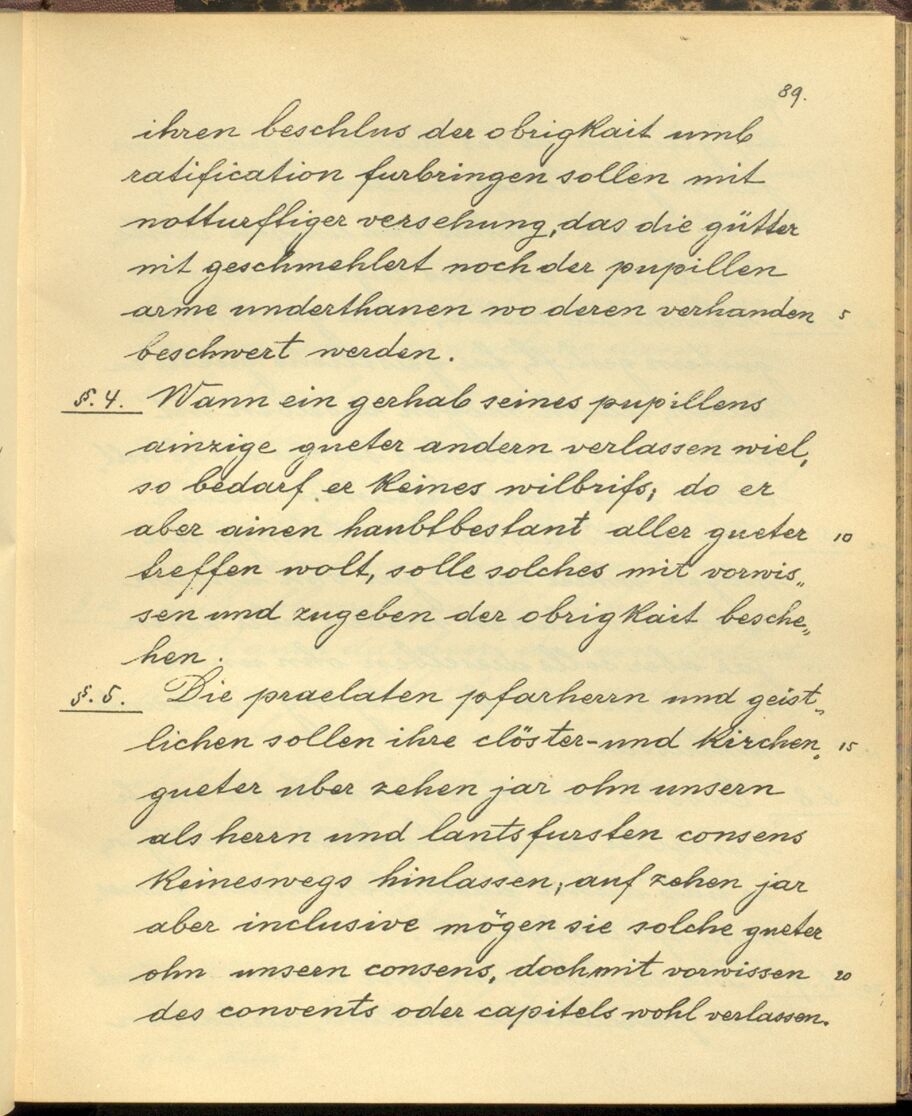 89.
ihren beschlus der obrigkait umb
ratification furbringen sollen mit
notturftiger versehung, das die gütter
nit geschmehlert noch der pupillen
arme underthanen wo deren verhanden 5
beschwert werden.
§. 4. Wann ein gerhab seines pupillens
ainzige gueter andern verlassen wiel,
so bedarf er keines wilbrifs; do er
aber ainen haubtbestant aller gueter 10
treffen wolt, solle solches mit vorwis„
sen und zugeben der obrigkait besche„
hen.
§. 5. Die praelaten pfarherrn und geist„
lichen sollen ihre clöster- und kirchen„ 15
gueter uber zehen jar ohn unsern
als herrn und lantsfursten consens
keineswegs hinlassen; auf zehen jar
aber inclusive mögen sie solche gueter
ohn unsern consens, doch mit vorwissen 20
des convents oder capitels wohl verlassen.